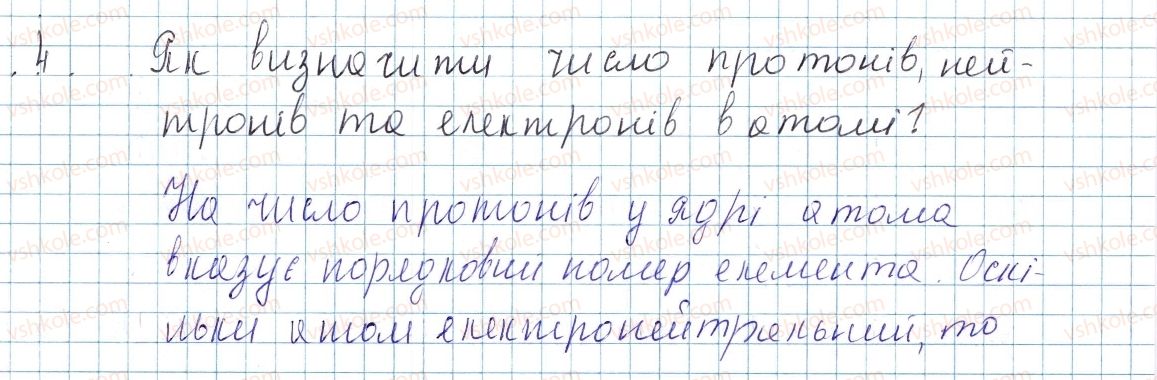 4. Як визначити число протонів, ней-
тронів та електронів в атомі?
На число протонів у ядрі атома
вказує порядковий номер елемента. Оскі-
льки атом електронейтральний, то